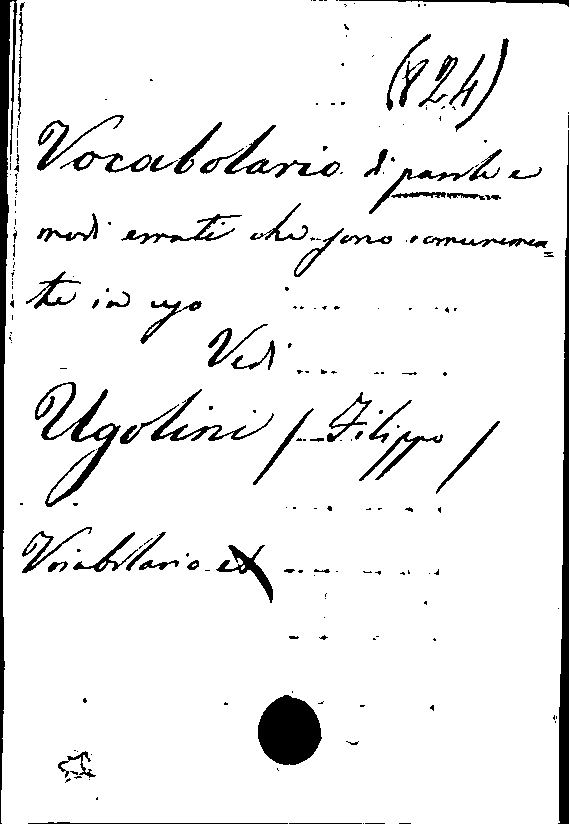 (824)
Vocabolario di parole e
modi errati che sono comunemen=
te in uso
Vedi
Ugolini (Filippo)
Vocabolario